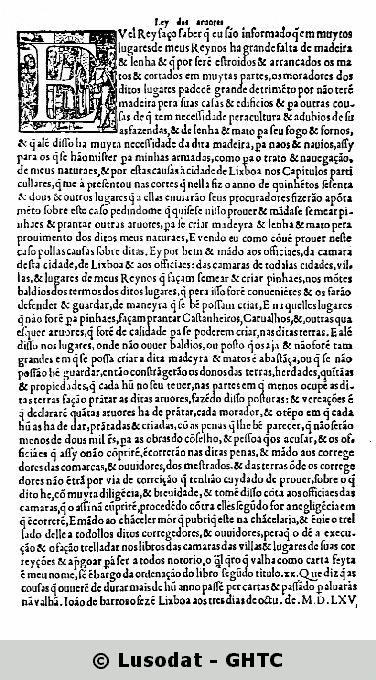 Ley das aruores
Vel Rey faço saber q̃ eu são informado q̃ em muytos
lugares de meus Reynos ha grande falta de madeira
& lenha & q̃ por serẽ estroidos & arrancados os ma
tos & cortados em muytas partes, os moradores dos
ditos lugares padecẽ grande detrimẽto por não terẽ
madeira pera suas casas & edificios & pa outras cou-
sas de q̃ tem necessidade pera cultura & adubios de su
as fazendas, & de lenha & mato pa seu fogo & fornos,
& q̃ alẽ disso ha muyta necessidade da dita madeira, pa naos & nauios, assy
para os q̃ se hão mister pa minhas armadas, como pa o trato & nauegação,
de meus naturaes, & por estas causas á cidade de Lixboa nos Capitulos parti
cullares, que me á presentou nas cortes q̃ nella fiz o anno de quinhẽtos sesenta
& dous & outros lugares q̃ a ellas enuiarão seus procuradores fizerão apõta
mẽto sobre este caso pedindome q̃ quisese nisso prouer & mãdase semear pi-
nhaes & prantar outras aruores, pa se criar madeyra & lenha & mato pera
prouimento dos ditos meus naturaes, E vendo eu como cõuẽ prouer neste
caso pollas causas sobre ditas, Ey por bem & mãdo aos officiaes, da camara
desta cidade, de Lixboa & aos officiaes: das camaras de todalas cidades, vil-
las, & lugares de meus Reynos q̃ façam semear & criar pinhaes, nos mõtes
baldios dos termos dos ditos lugares, q̃ pera isso forẽ conueniẽtes & os farão
defender & guardar, de maneyra q̃ se bẽ possam criar, E naquelles lugares
q̃ não forẽ pa pinhaes, façam prantar Castanheiros, Carualhos, &, outras qua
esquer aruores, q̃ forẽ de calidade pa se poderem criar, nas ditas terras. E alẽ
disso nos lugares, onde não ouuer baldios, ou posto q̃ os aja & não forẽ tam
grandes em q̃ se possa criar a dita madeyra & matos ẽ abastãça, ou q̃ se não
possão bẽ guardar, então constrãgerão os donos das terras, herdades, quĩtãas
& propiedades, q̃ cada hũ no seu teuer, nas partes em q̃ menos ocupẽ as di-
tas terras fação prãtar as ditas aruores, fazẽdo disso posturas: & vereações ẽ
q̃ declararẽ quãtas aruores ha de prãtar, cada morador, & o tẽpo em q̃ cada
hũ as ha de dar, prãtadas & criadas, cõ as penas q̃ lhe bẽ parecer, q̃ não serão
menos de dous mil r̃s, pa as obras do cõselho, & pessoa q̃ os acusar, & os of-
ficiaes q̃ assy onão cõprirẽ, ẽcorrerão nas ditas penas, & mãdo aos correge
dores das comarcas, & ouuidores, dos mestrados. & das terras õde os correge
dores não ẽtrã por via de correição q̃ tenhão cuydado de prouer, sobre o q̃
dito he, cõ muyta diligẽcia, & breuidade, & tomẽ disso cõta aos officiaes das
camaras, q̃ o assi nã cũprirẽ, procedẽdo cõtra elles segũdo for a negligẽcia em
q̃ ẽcorrerẽ, E mãdo ao chãceler mór q̃ pubriq̃ esta na chãcelaria, & ẽuie o tref
lado delle a todollos ditos corregedores, & ouuidores, pera q̃ o dẽ a execu-
ção & o fação trelladar nos libros das camaras das villas & lugares de suas cor
reyções & apregoar pa ser a todos notorio, o q̃l q̃ro q̃ valha como carta feyta
ẽ meu nome, sẽ ẽbargo da ordenação do libro segũdo titulo. xx. Que diz q̃ as
cousas q̃ ouuerẽ de durar mais de hũ anno passẽ per cartas & passãdo p aluarás
nã valhã. Ioão de barros o fez ẽ Lixboa aos tres dias de octu. de. M. D. LXV,
© Lusodat - GHTC